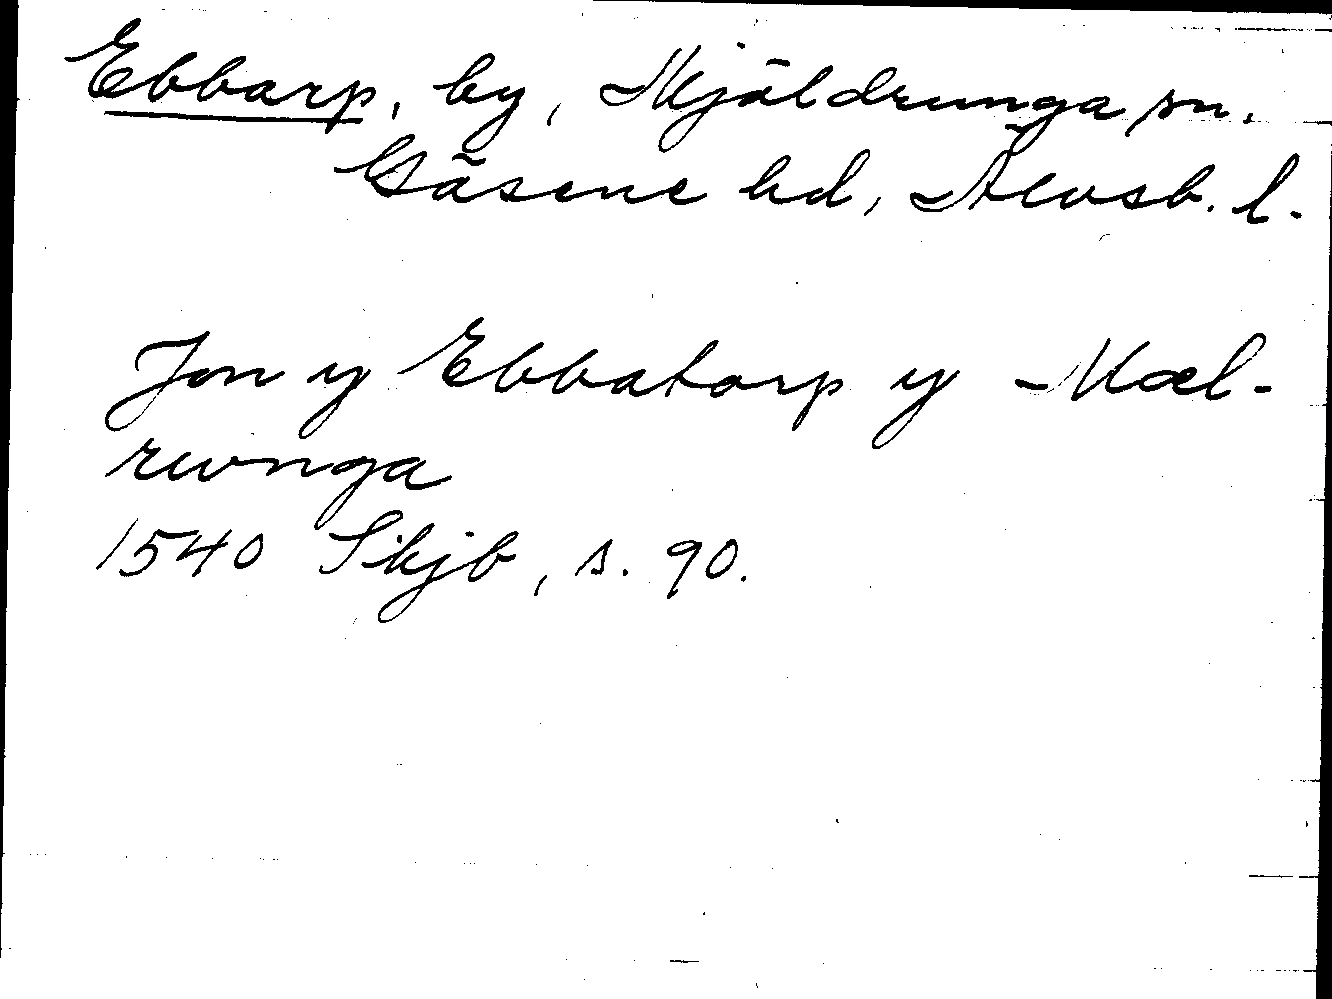 Ebbarp, by, Mjäldrunga sn.
Gäsene hd, Älvsb. l.
Jon y Ebbatorp y Mæl-
rwnga
1540 Skjb, s. 90.